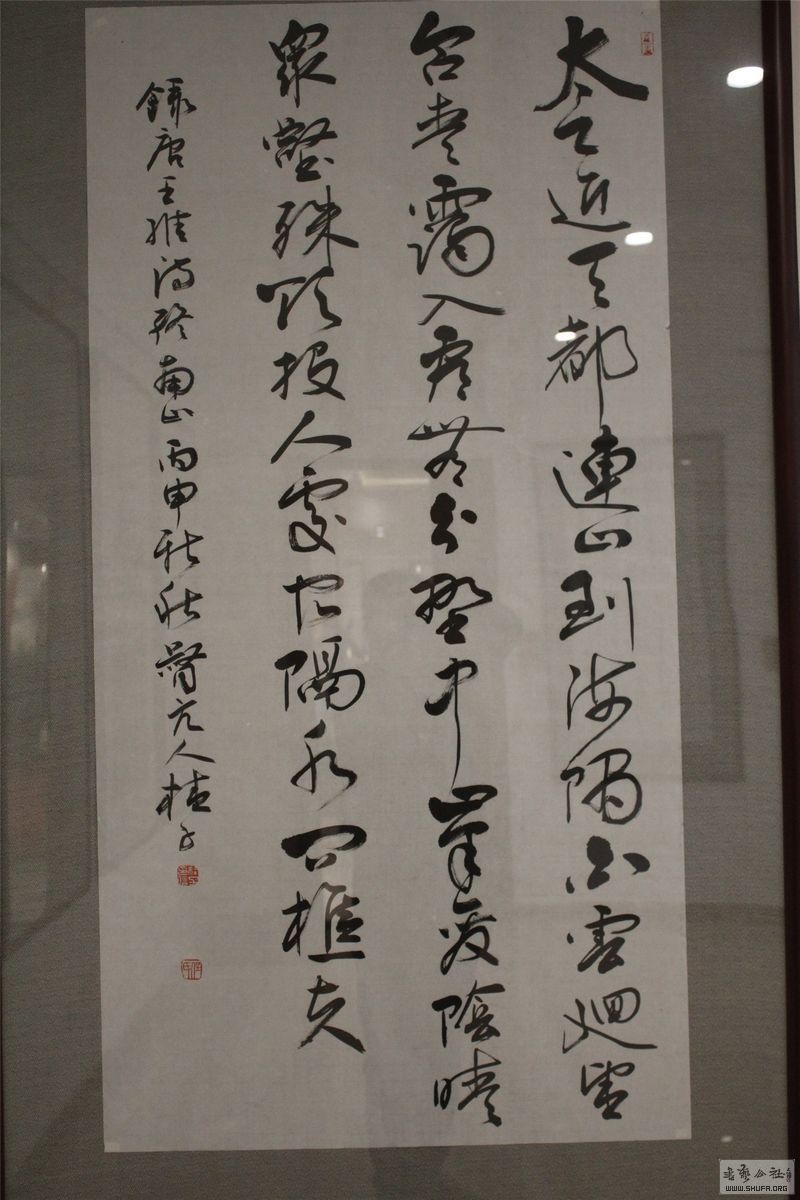 太乙近天都連山到海隅白雲迴望
合青靄入看無分野中峯變陰晴
眾壑殊欲投人處宿隔水問樵夫
錄唐王維詩終南山丙申秋
書藝公社
WWW.SHUFA.ORG